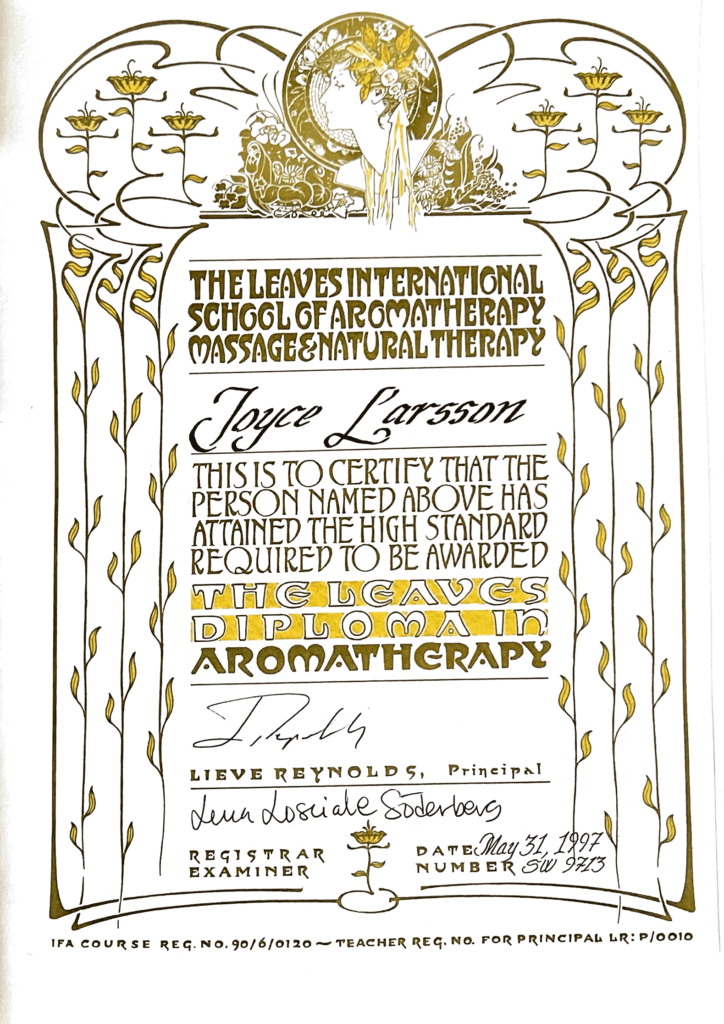 THE LEAVES INTERNATIONAL
SCHOOL OF AROMATHERAPY
MASSAGE & NATURAL THERAPY
Joyce Larsson
THIS IS TO CERTIFY THAT THE
PERSON NAMED ABOVE HAS
ATTAINED THE HIGH STANDARD
REQUIRED TO BE AWARDED
THE LEAVES
DIPLOMA IN
AROMATHERAPY
LIEVE REYNOLDS, Principal
Lena Losciale Söderberg
REGISTRAR
EXAMINER
DATE May 31, 1997
NUMBER SW 9713
IFA COURSE REG. NO. 90/6/0120 ~ TEACHER REG. NO. FOR PRINCIPAL LR: P/0010